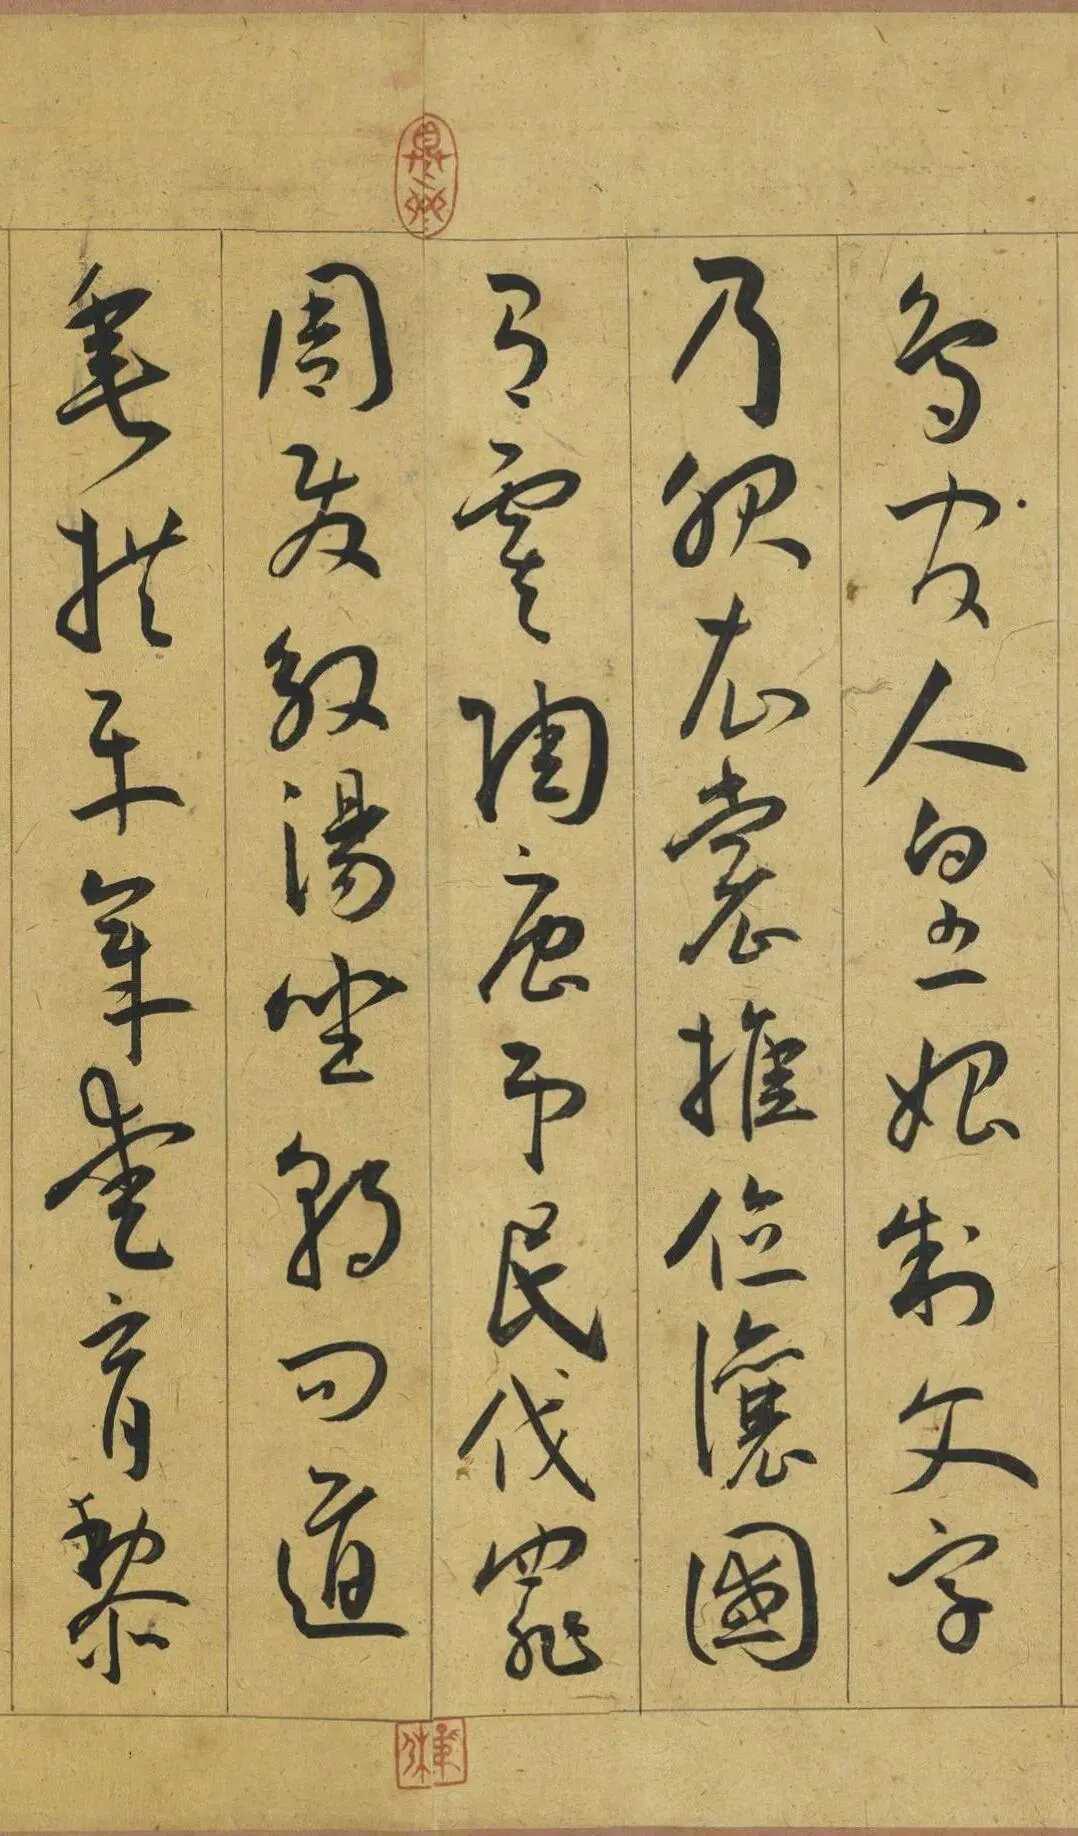 鳥官人皇始制文字
乃服衣裳推位讓國
有虞陶唐弔民伐罪
周發殷湯坐朝問道
垂拱平章愛育黎